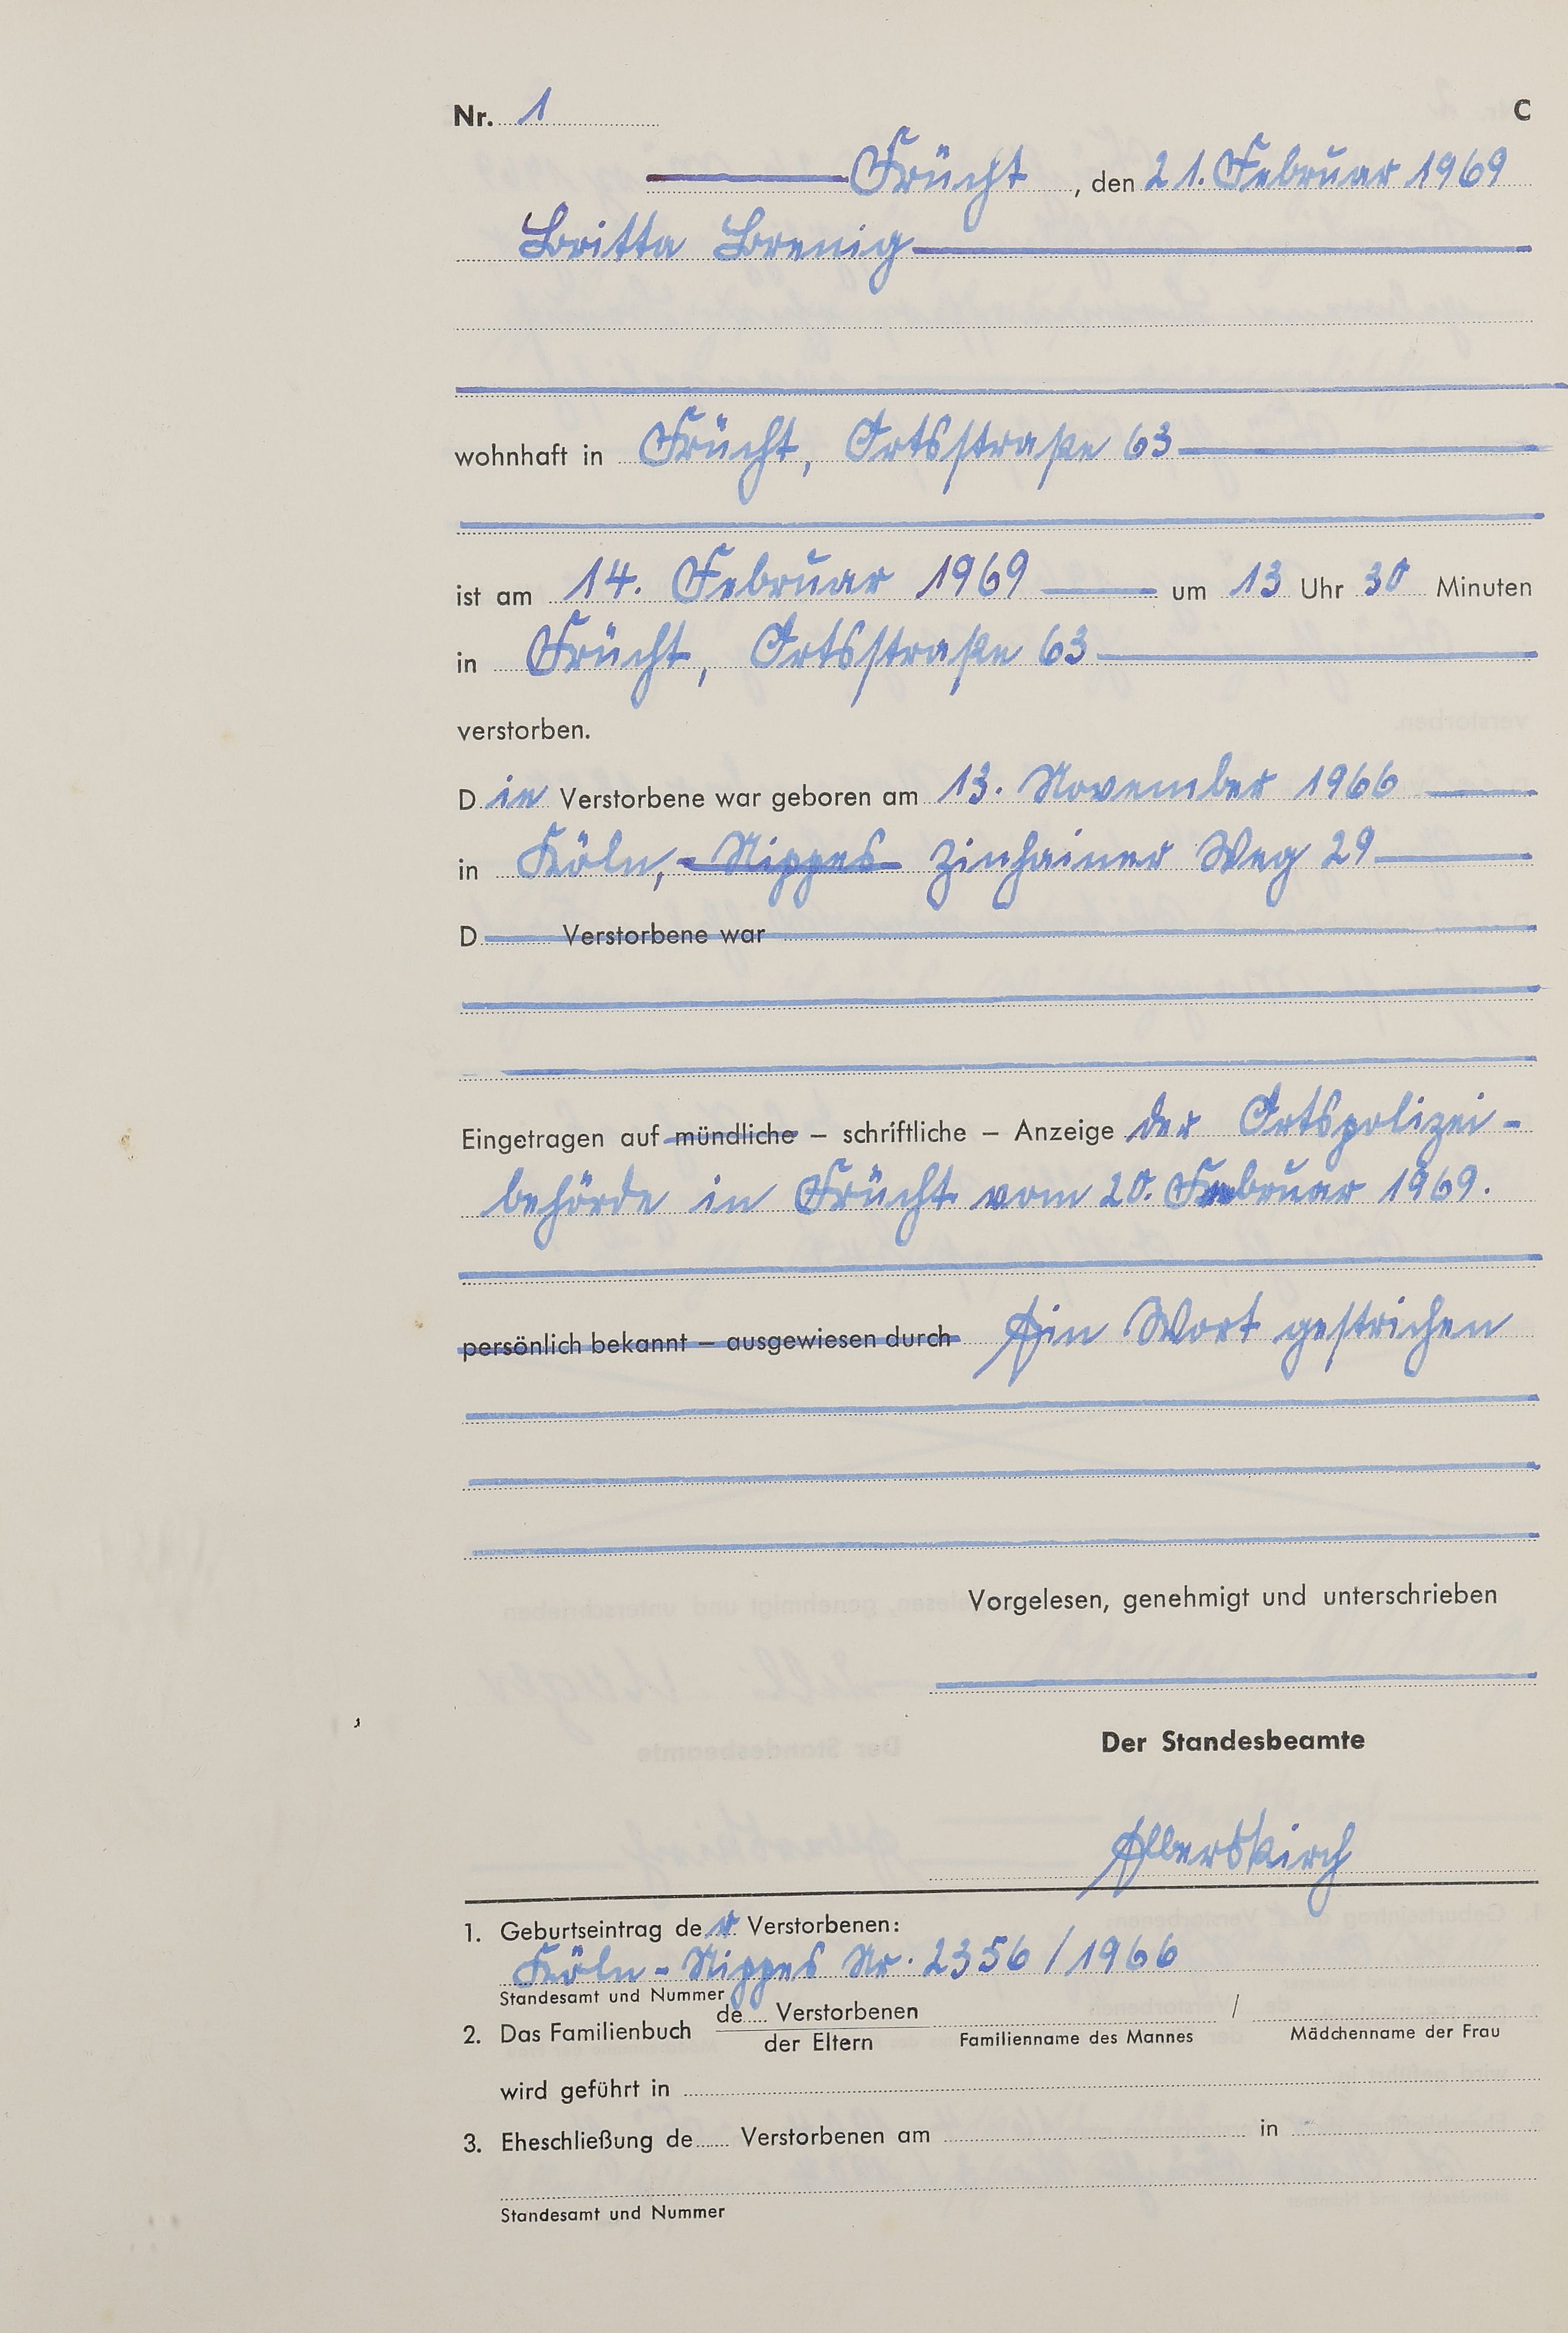 Nr. 1 C
Frücht, den 21. Februar 1969
Britta Brenig
wohnhaft in Frücht, Ortsstraße 63
ist am 14. Februar 1969 um 13 Uhr 30 Minuten
in Frücht, Ortsstraße 63
verstorben.
Die Verstorbene war geboren am 13. November 1966
in Köln, - Nippes Zinhainer Weg 29
D Verstorbene war
Eingetragen auf mündliche – schriftliche – Anzeige der Ortspolizei-
behörde in Frücht vom 20. Februar 1969.
persönlich bekannt – ausgewiesen durch Ein Wort gestrichen
Vorgelesen, genehmigt und unterschrieben
Der Standesbeamte
1. Geburtseintrag der Verstorbenen:
Köln-Nippes Nr. 2356/1966
Standesamt und Nummer
2. Das Familienbuch de.... Verstorbenen /
der Eltern Familienname des Mannes Mädchenname der Frau
wird geführt in
3. Eheschließung de...... Verstorbenen am in
Standesamt und Nummer